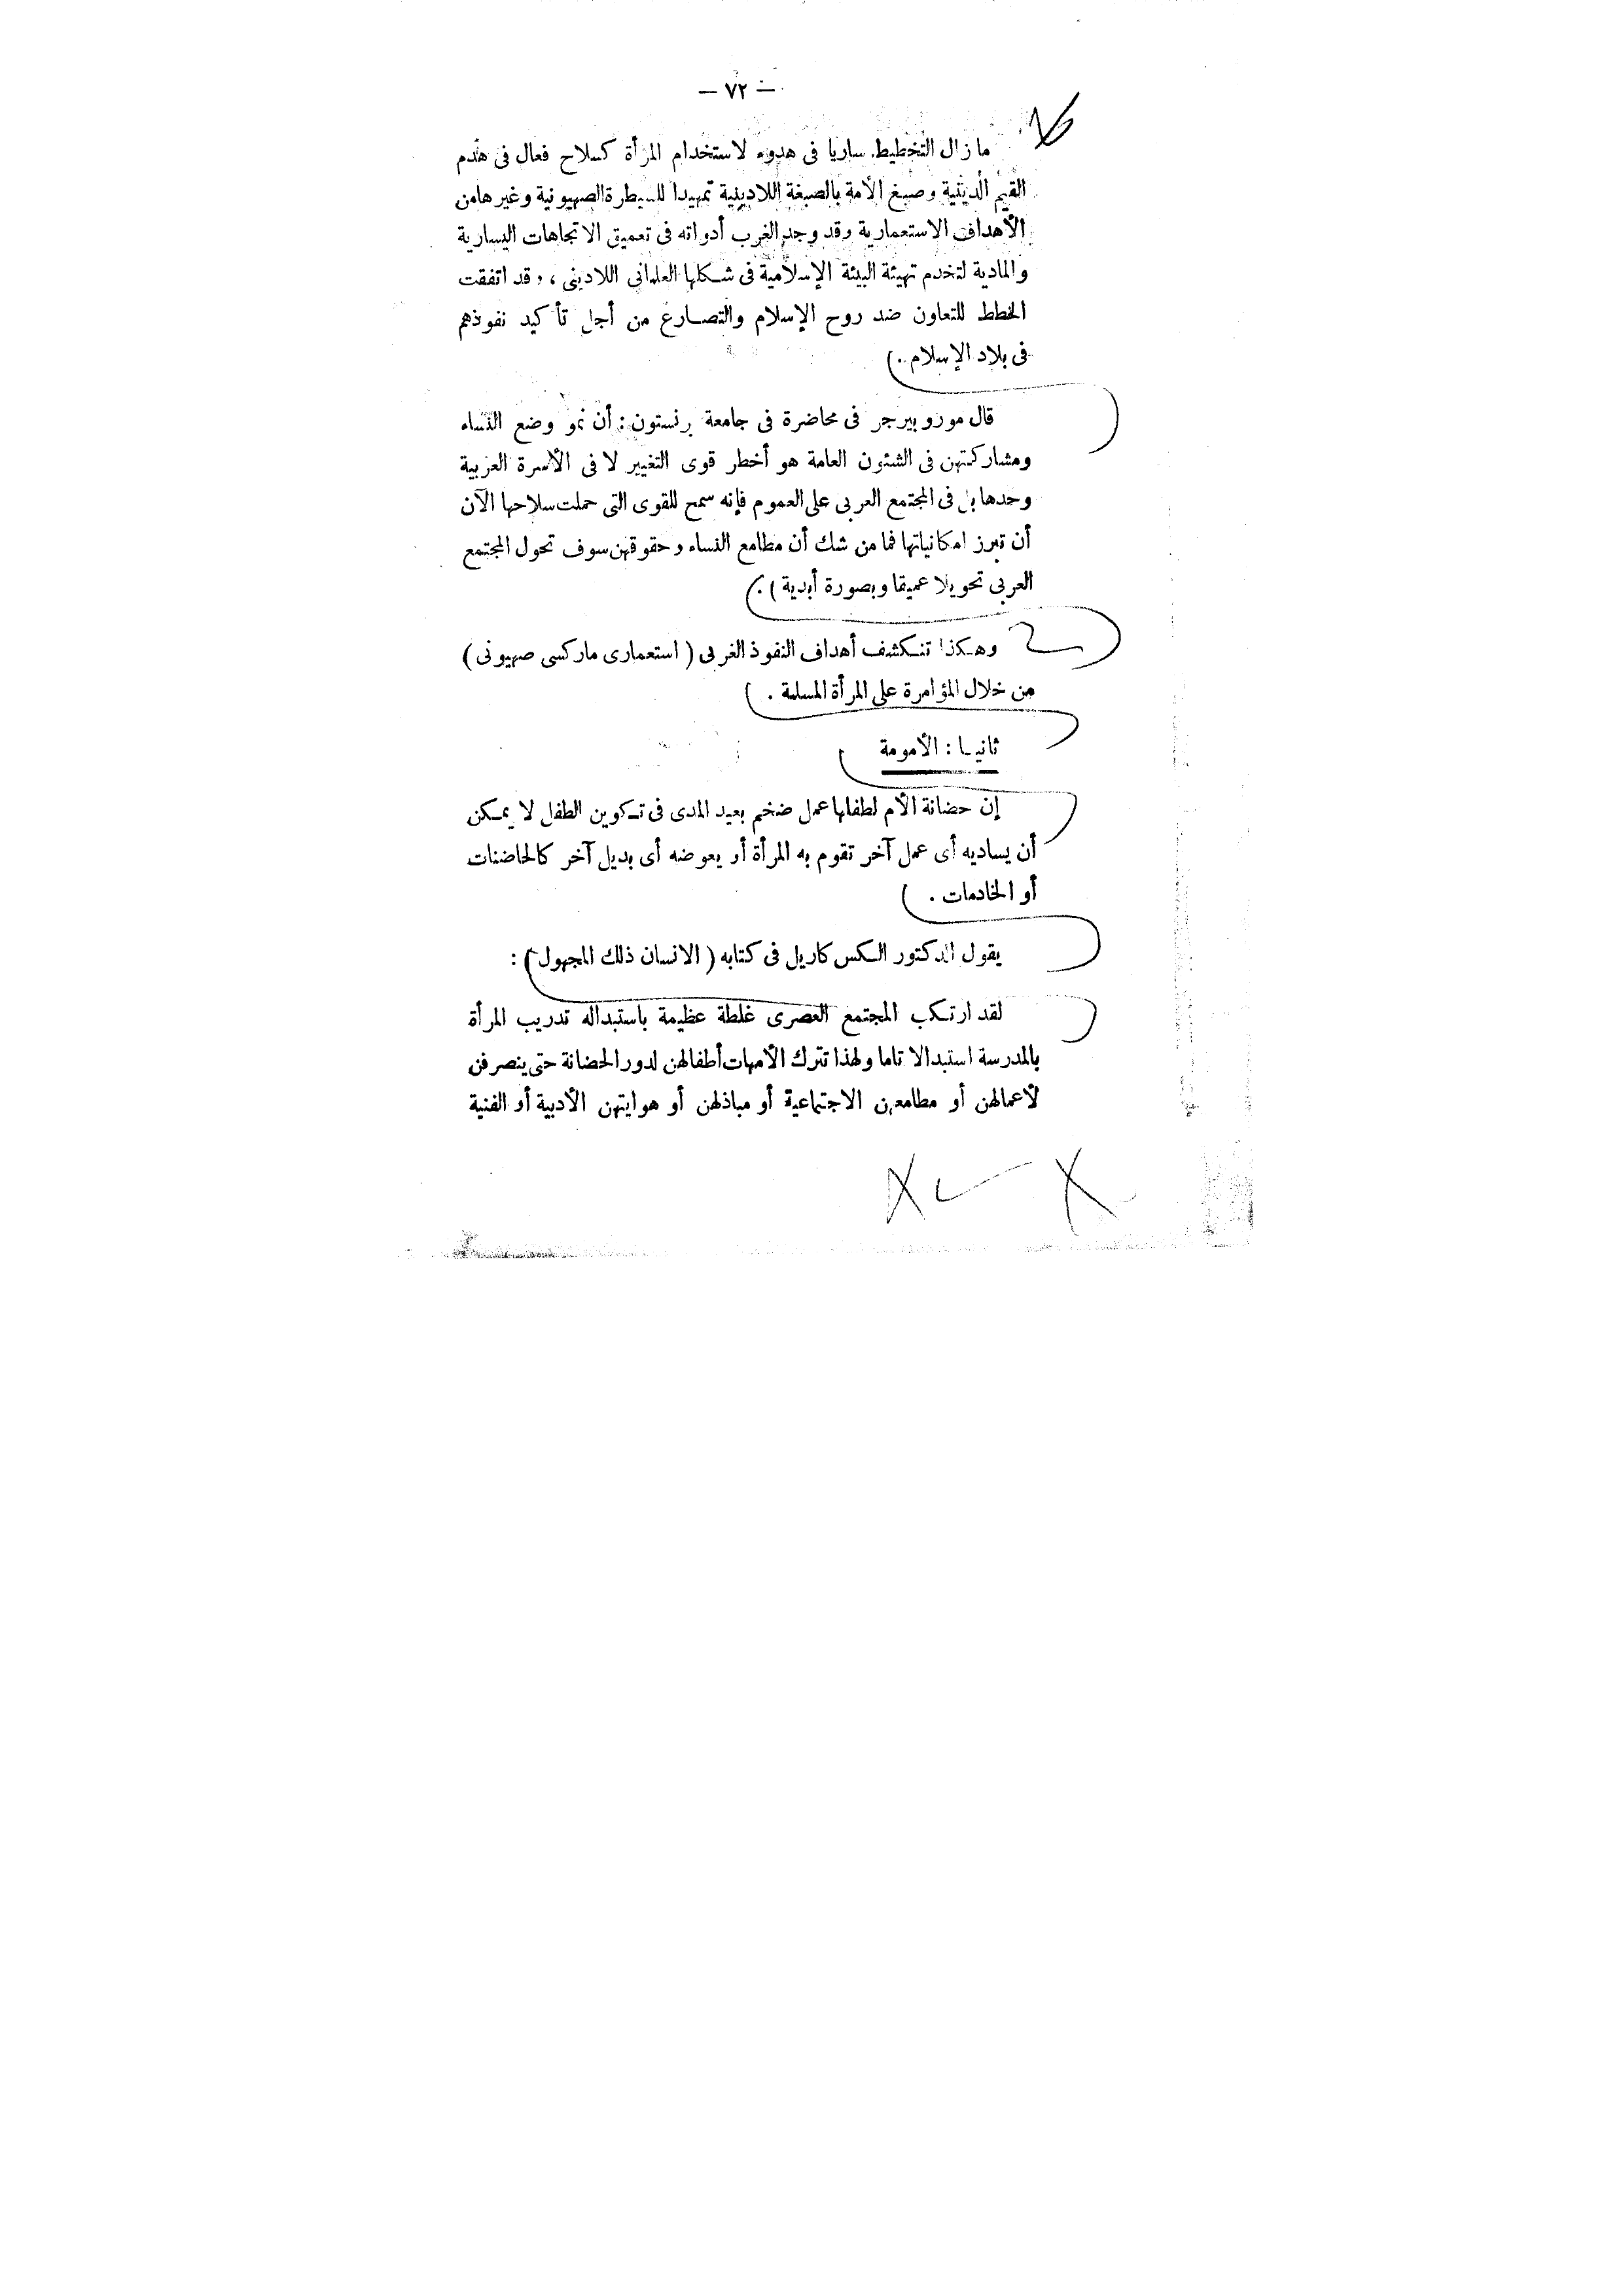 — ٧٢ —
ما زال التخطيط ساريا فى هدوء لاستخدام المرأة كسلاح فعال فى هدم
القيم الدينية وصبغ الأمة بالصبغة اللادينية تمهيدا للسيطرة الصهيونية وغيرها من
الأهداف الاستعمارية وقد وجد الغرب أدواته فى تعميق الاتجاهات اليسارية
والمادية لتخدم تهيئة البيئة الإسلامية فى شكلها العلمانى اللادينى ، وقد اتفقت
الخطط للتعاون ضد روح الإسلام والتصارع من أجل تأكيد نفوذهم
فى بلاد الإسلام .
قال مورو بيرجر فى محاضرة فى جامعة برنستون : أن نمو وضع النساء
ومشاركتهن فى الشئون العامة هو أخطر قوى التغيير لا فى الأسرة العربية
وحدها بل فى المجتمع العربى على العموم فإنه سمح للقوى التى حملت سلاحها الآن
أن تبرز امكانياتها فما من شك أن مطامع النساء وحقوقهن سوف تحول المجتمع
العربى تحويلا عميقا وبصورة أبدية ) .
وهكذا تنكشف أهداف النفوذ الغربى ( استعمارى ماركسى صهيونى )
من خلال المؤامرة على المرأة المسلمة .
ثانيا : الأمومة
إن حضانة الأم لطفلها عمل ضخم بعيد المدى فى تكوين الطفل لا يمكن
أن يساديه أى عمل آخر تقوم به المرأة أو يعوضه أى بديل آخر كالحاضنات
أو الخادمات .
يقول الدكتور الكس كاريل فى كتابه ( الانسان ذلك المجهول ) :
لقد ارتكب المجتمع العصرى غلطة عظيمة باستبداله تدريب المرأة
بالمدرسة استبدالا تاما ولهذا تترك الأمهات أطفالهن لدور الحضانة حتى ينصرفن
لأعمالهن أو مطامعهن الاجتماعية أو مباذلهن أو هوايتهن الأدبية أو الفنية